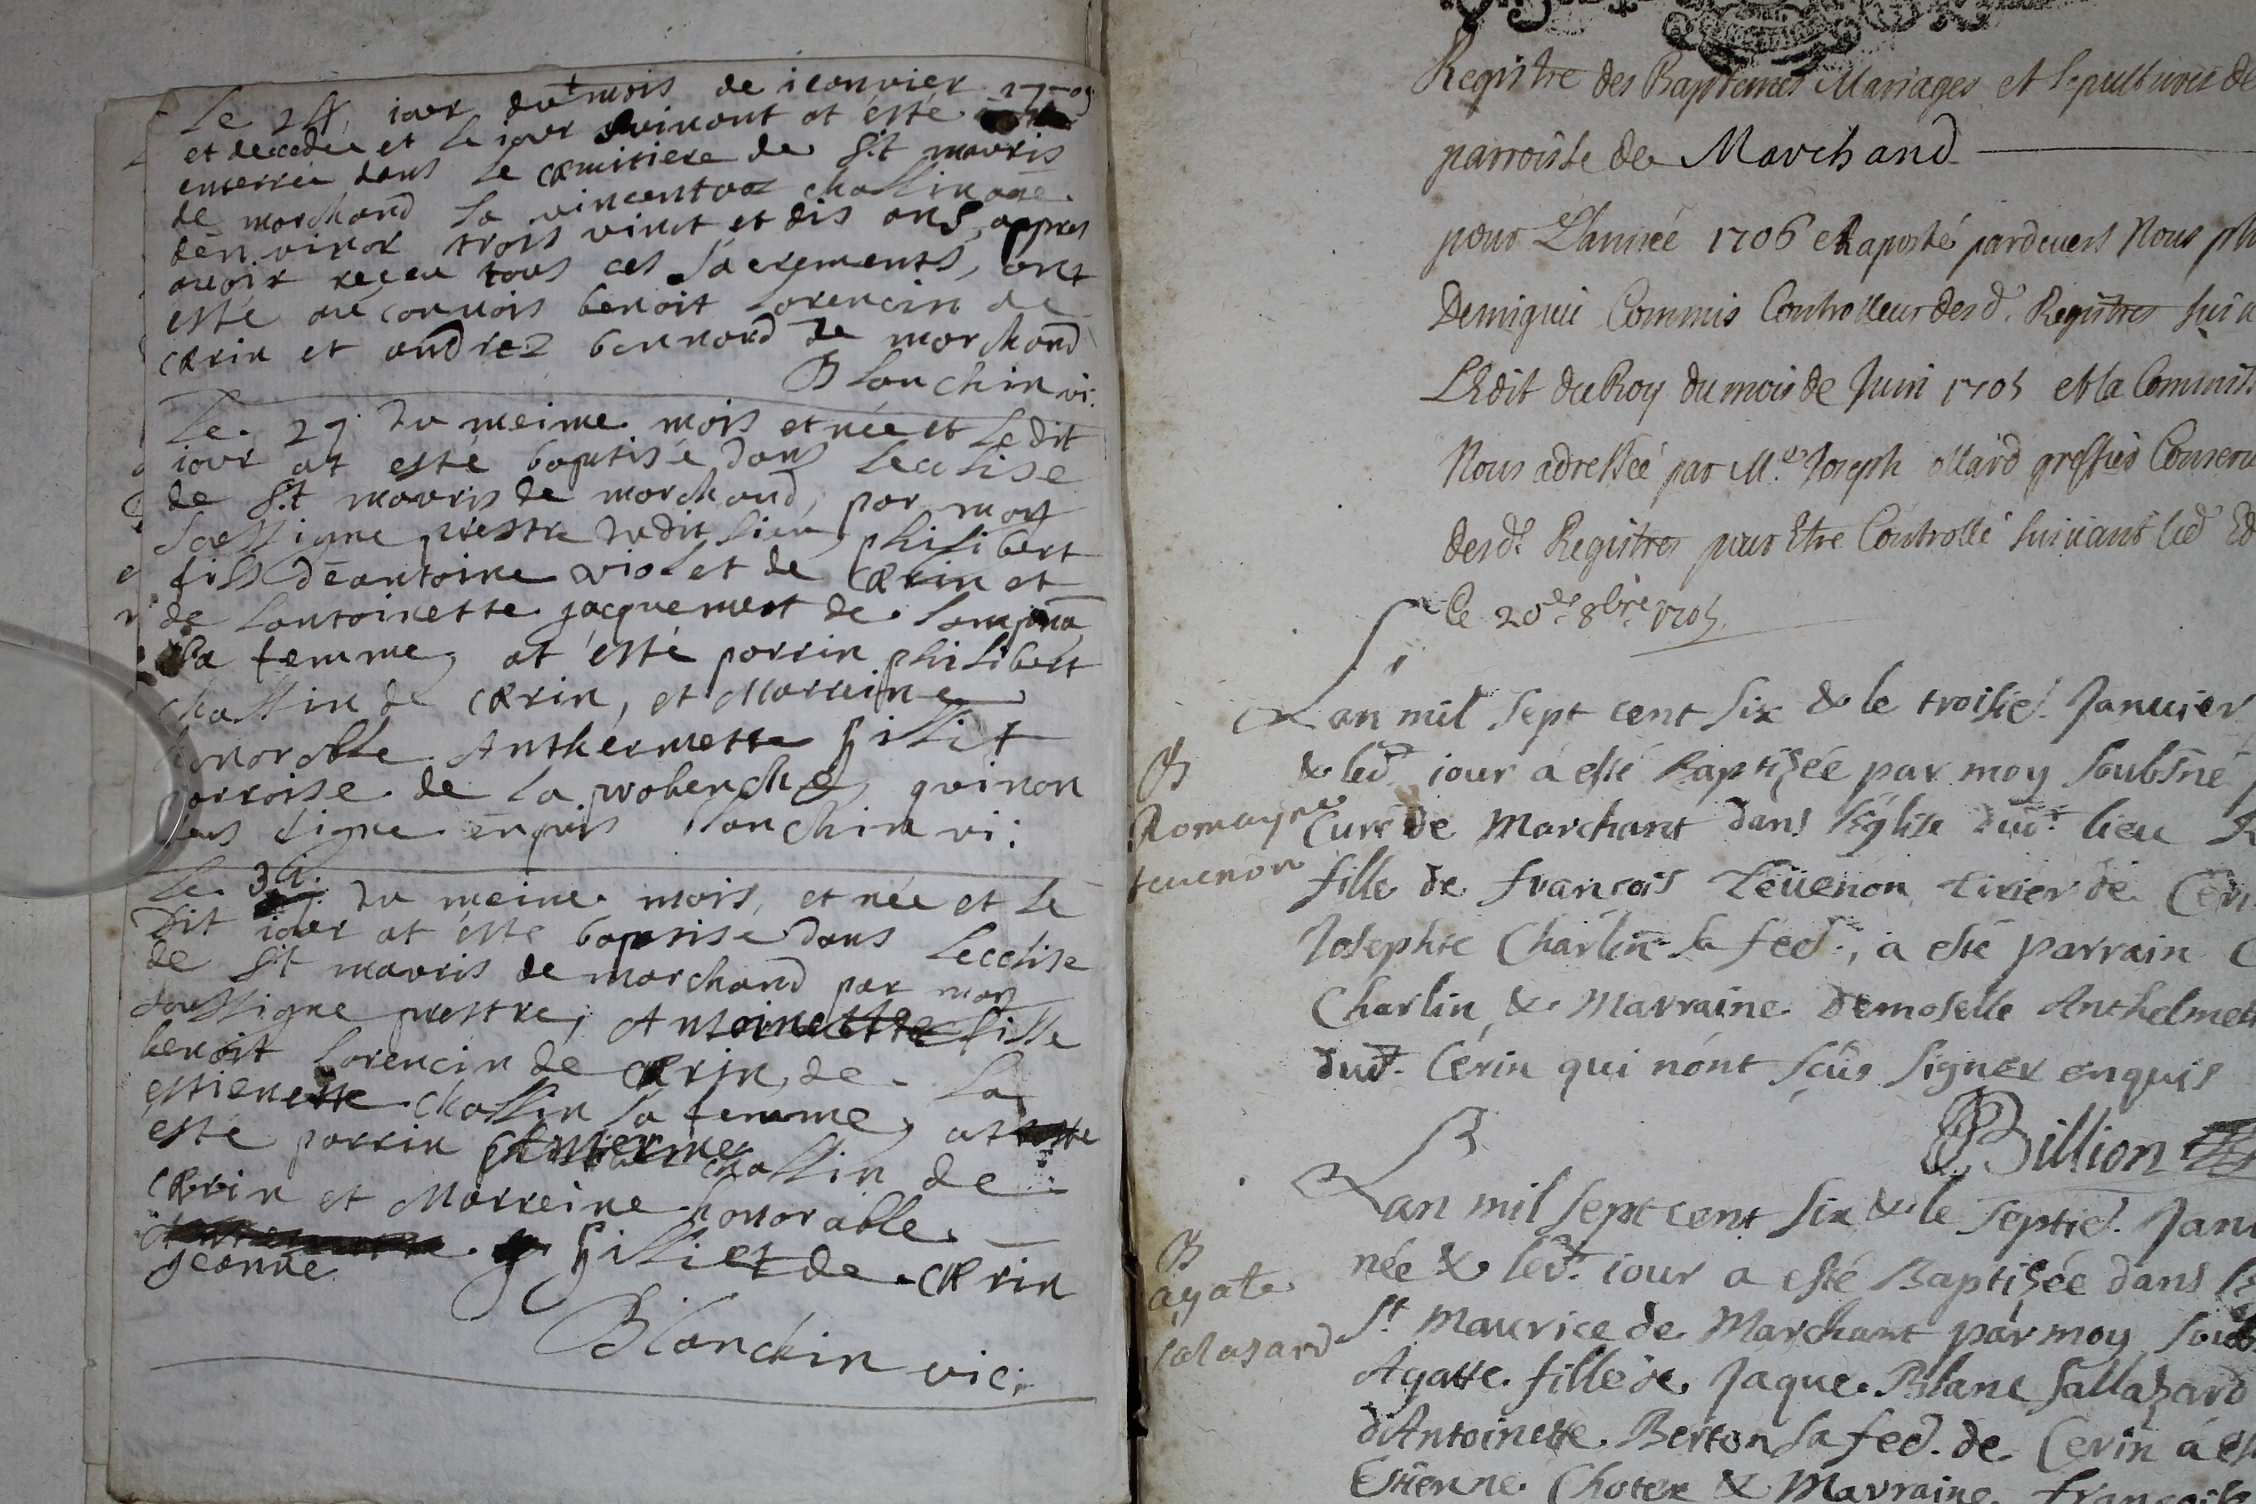 Le 24 iour du mois de ianvier
et decedée et le iour suivant at ésté
enterrée dans le cemitiere de St mauris
de marchand la vincentaz challin agé
denviron trois vint et dis ans appres
avoir reçeu tous ces sacrements, ont
esté au convois benoit lorencin de
cerin et andrez bonnard de marchand
Blanchin vi.
Le 29 du meime mois et née et ledit
iour at esté baptisé dans leclise
de St mauris de marchand, par moy
soussigne prestre dudit lieu philibert
fils deantoine violet de cerin et
de lantoinette jacquemet de
sa femme, at ésté parrin philibert
challin de cerin, et Marreine
honorable Anthermette Gilliet
parroise de la probenche, quinon
seus signe enquis Blanchin vi:
Le du meime mois, et née et le
Dit iour at esté baptisé dans leclise
de St mauris de marchand par moy
soussigne prestre, Antoinette fille
benoit lorencin de cerin, de la
estienette challin sa femme, at
esté parrin challin de
cerin et Marreine honorable
Jeanne Gilliet de cerin
Blanchin vic:
Registre des Baptemes Mariages et sepultures de
parroisse de Marchand
pour L'année 1706 et aposté pardevers Nous
Commis Controlleur desd. Registres suiv
L'Edit du Roy du mois de Juin 1705 et la Commiss
Nous adressée par Me. Joseph ollard greffier Conserv
desd. Registres pour Etre Controllé suivant led Ed
Ce 20e 8bre 1705
B
Romayne
tevenon
Lan mil sept cent six & le troisie. Janvier
& led. iour a esté Baptizée par moy soubsné
Curé de Marchant dans l'Eglise dud. lieu
fille de François Tevenon tixier de Ceri
Josephte Charlin sa fed., a esté parrain
Charlin, & Marraine demoselle Anthelmet
dud. Cérin qui n'ont sçûs signer enquis
Billion
B
agate
salasard
Lan mil sept cent six & le septie. Janv
née & led. iour a esté Baptizée dans l'E
St. Maurice de Marchant par moy soub
Agatte fille de Jaque Blanc sallazard
d'Antoinette Berton sa fed. de Cerin a es
Estienne Choter & Marraine françoise